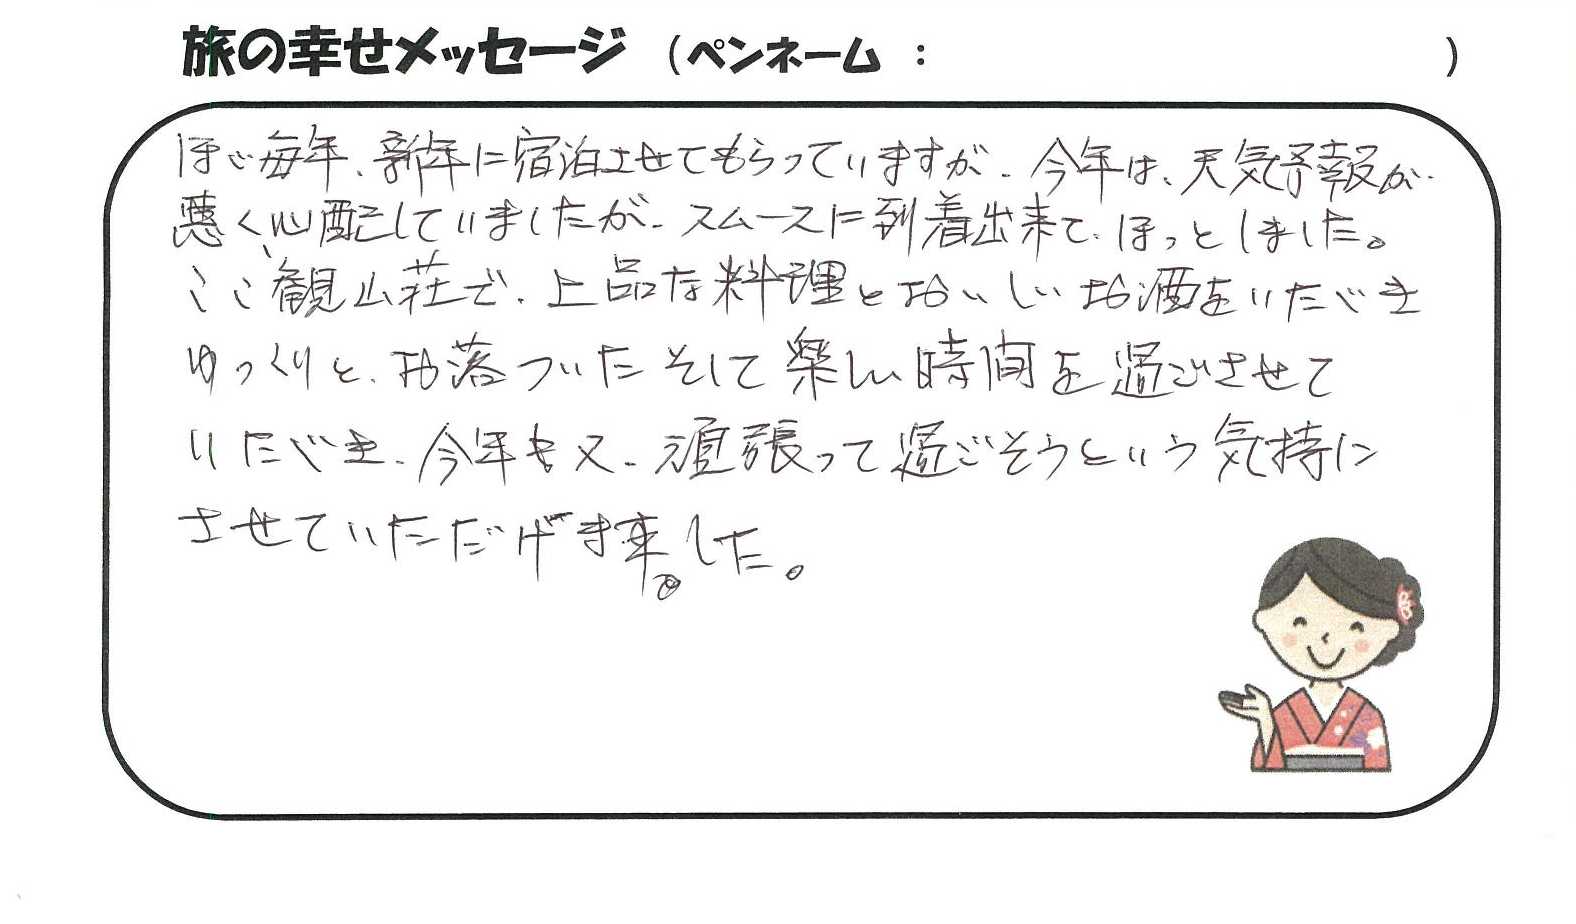 旅の幸せメッセージ (ペンネーム : )
ほぼ毎年、新年に宿泊させてもらっていますが、今年は、天気予報が
悪く心配していましたが、スムースに到着出来て、ほっとしました。
ここ観山荘で、上品な料理とおいしいお酒をいただき
ゆっくりと、お落ついたそして楽しい時間を過ごさせて
いただき、今年も又、頑張って過ごそうという気持に
させていただけました。